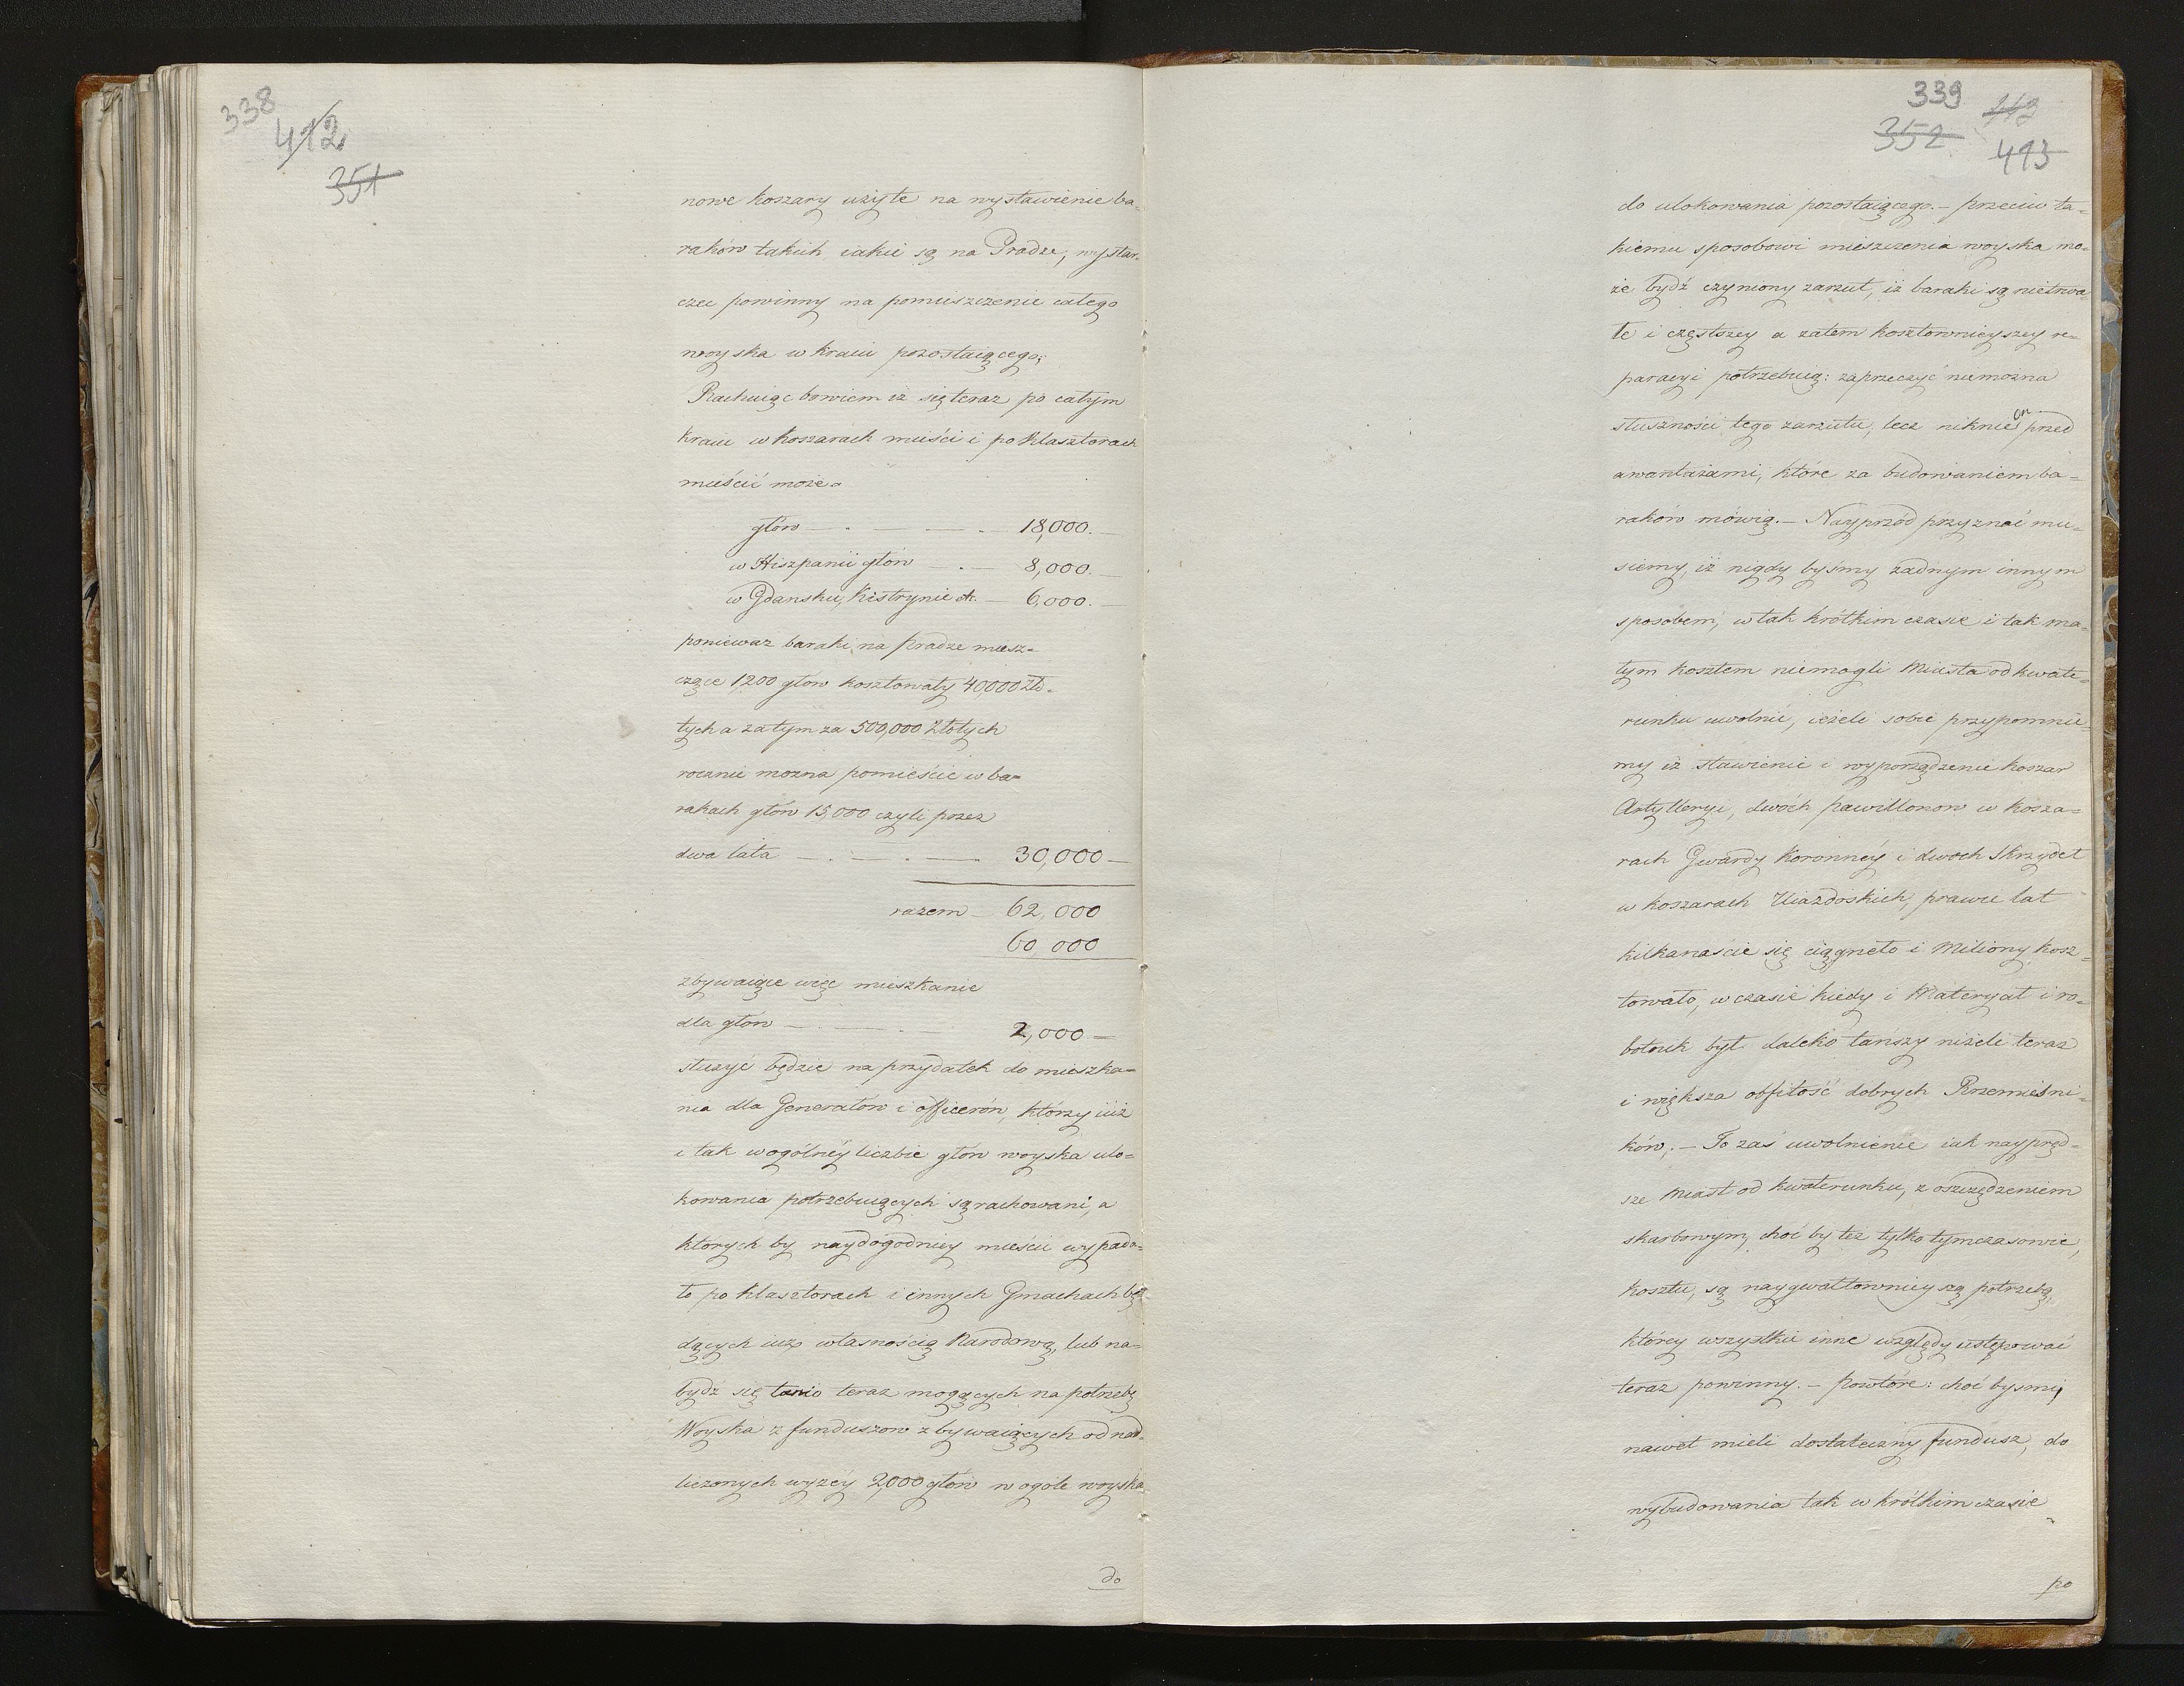 338
412
351
nowe koszary użyte na wystawienie ba=
raków takich iakie są na Pradze, wystar=
czec powinny na pomieszczenie całego
woyska w kraiu pozostaiącego;
Rachuiąc bowiem iż się teraz po całym
kraiu w koszarach mieści i po Klasztorach
mieścić może=
głów — . — — . 18,000. —
w Hiszpanii głów — . — 8,000. —
w Gdansku, Kistrynie etc. — 6,000. —
ponieważ baraki na Pradze miesz=
czące 1200 głów kosztowały 40000 zło=
tych a zatym za 500,000 Złotych
rocznie mozna pomieścić w ba=
rakach głów 15,000 czyli przez
dwa lata — . — . — 30,000 —
razem — 62,000
60,000
zbywaiące więc mieszkanie
dla głów — . — . — 2,000 =
służyć będzie na przydatek do mieszka=
nia dla Generałów i officerów, którzy iuż
i tak w ogólney liczbie głów woyska ulo=
kowania potrzebuiących są rachowani, a
ktorych by naydogodniey mieścić wypada=
ło po Klasztorach i innych Gmachach bę=
dących iuż własnością Narodową, lub na=
bydź się tanio teraz mogących na potrzebę
Woyska z funduszow zbywaiących od nad=
liczonych wyzéy 2,000 głów w ogóle woyska
do
339
352
413
413
do ulokowania pozostaiącego. — przeciw ta=
kiemu sposobowi mieszczenia woyska mo=
że bydź czyniony zarzut, iż baraki są nietrwa=
łe i częstszey a zatem kosztownieyszey re=
paracyi potrzebuią: zaprzeczyć niemozna
słuszności tego zarzutu, lecz niknie on przed
awantażami, które za budowaniem ba=
raków mówią. — Nayprzód przyznać mu=
siemy, iż nigdy bysmy żadnym innym
sposobem, w tak krótkim czasie i tak ma=
łym kosztem niemogli Miasta od kwate=
runku uwolnić, ieżeli sobie przypomnie=
my iż stawienie i wyporządzenie koszar
Artylleryi, dwóch pawillonow w kosza=
rach Gwardy Koronnéy i dwoch Skrzydeł
w koszarach Uiazdoskich, prawie lat
kilkanaście się ciągneło i Miliony kosz=
towało, w czasie kiedy i Materyał i ro=
botnik był daleko tanszy niżeli teraz
i większa obfitość dobrych Rzemieśni=
ków; — To zaś uwolnienie iak naypręd=
sze Miast od kwaterunku, z oszczędzeniem
skarbowym, choć by też tylko tymczasowie,
kosztu, są naygwałtownieyszą potrzebą,
którey wszystkie inne względy ustępować
teraz powinny. — Powtóre: choć bysmy
nawet mieli dostateczny fundusz, do
wybudowania tak w krótkim czasie
po